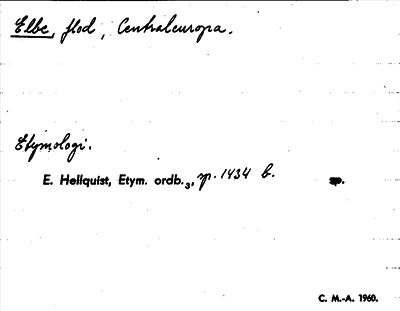 Elbe, flod, Centraleuropa.
Etymologi.
E. Hellquist, Etym. ordb.3, p. 1434 b. sp.
C. M.-A. 1960.